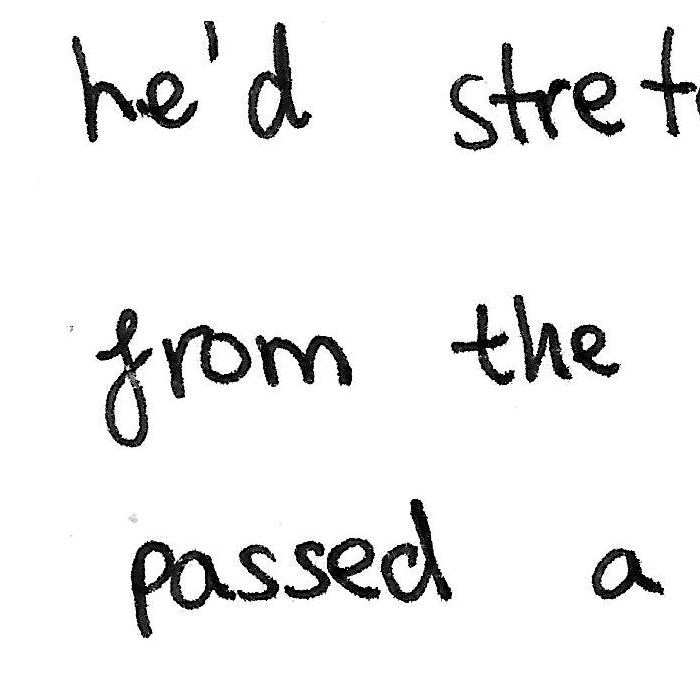 he'd stret
from the
passed a